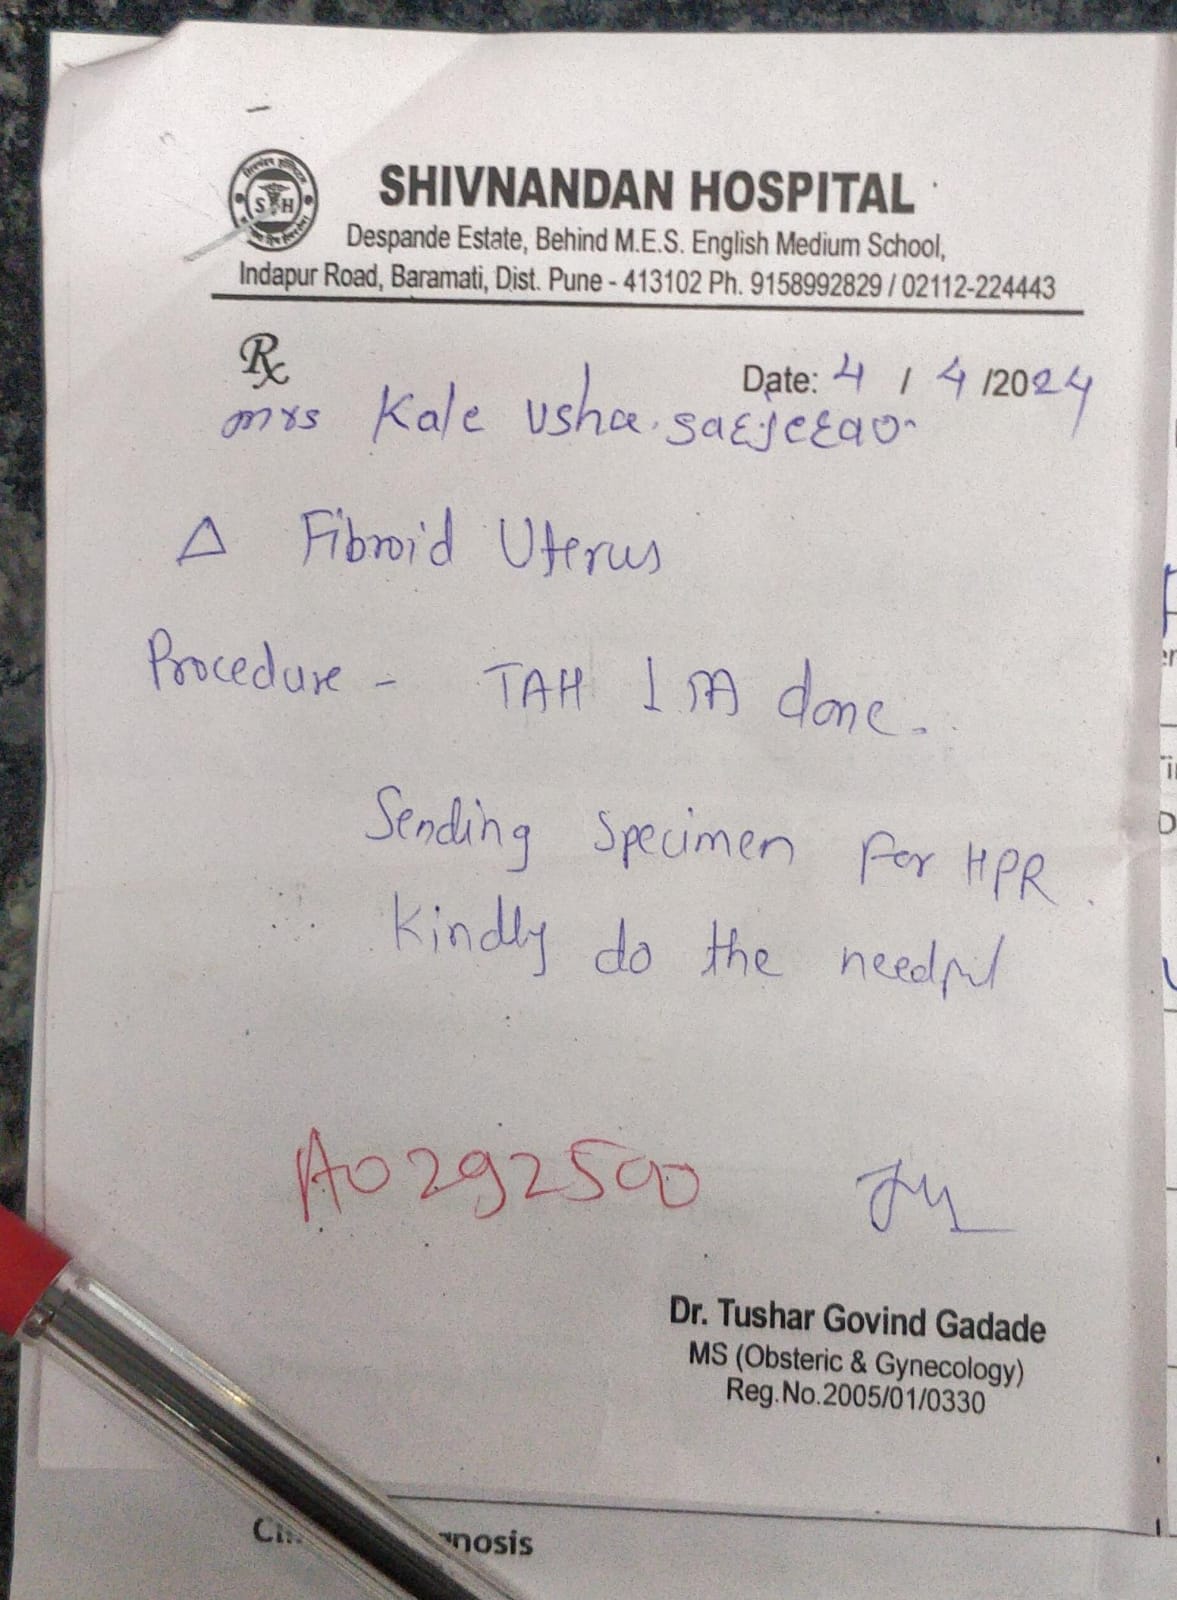 SHIVNANDAN HOSPITAL
S H
Despande Estate, Behind M.E.S. English Medium School,
Indapur Road, Baramati, Dist. Pune - 413102 Ph. 9158992829 / 02112-224443
Rx
Date: 4 / 4 /2024
mrs Kale Usha
Δ Fibroid Uterus
Procedure - TAH done.
Sending specimen for HPR.
Kindly do the needful
A0292500
Dr. Tushar Govind Gadade
MS (Obsteric & Gynecology)
Reg.No.2005/01/0330
gnosis